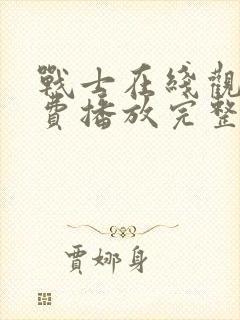 戰士在綫觀
費播放完整
賈娜身